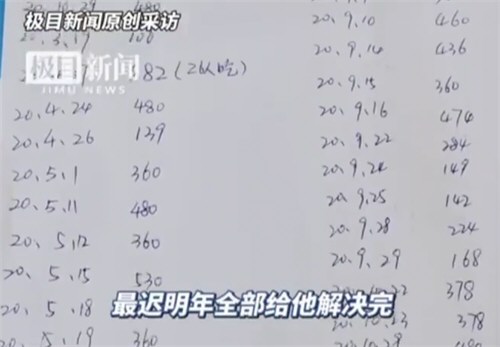 极目新闻原创采访
极目新闻
JIMU NEWS
82(26人吃)
20.4.24 480
20.4.26 139
20.5.1 360
20.5.11 480
20.5.12 360
20.5.15 530
20.5.18
20.5.19 360
20.9.10 460
20.9.14 436
20.9.15 360
20.9.16 474
20.9.22 284
20.9.24 149
20.9.25 142
20.9.28 224
20.9.29 168
378
378
最迟明年全部给他解决完